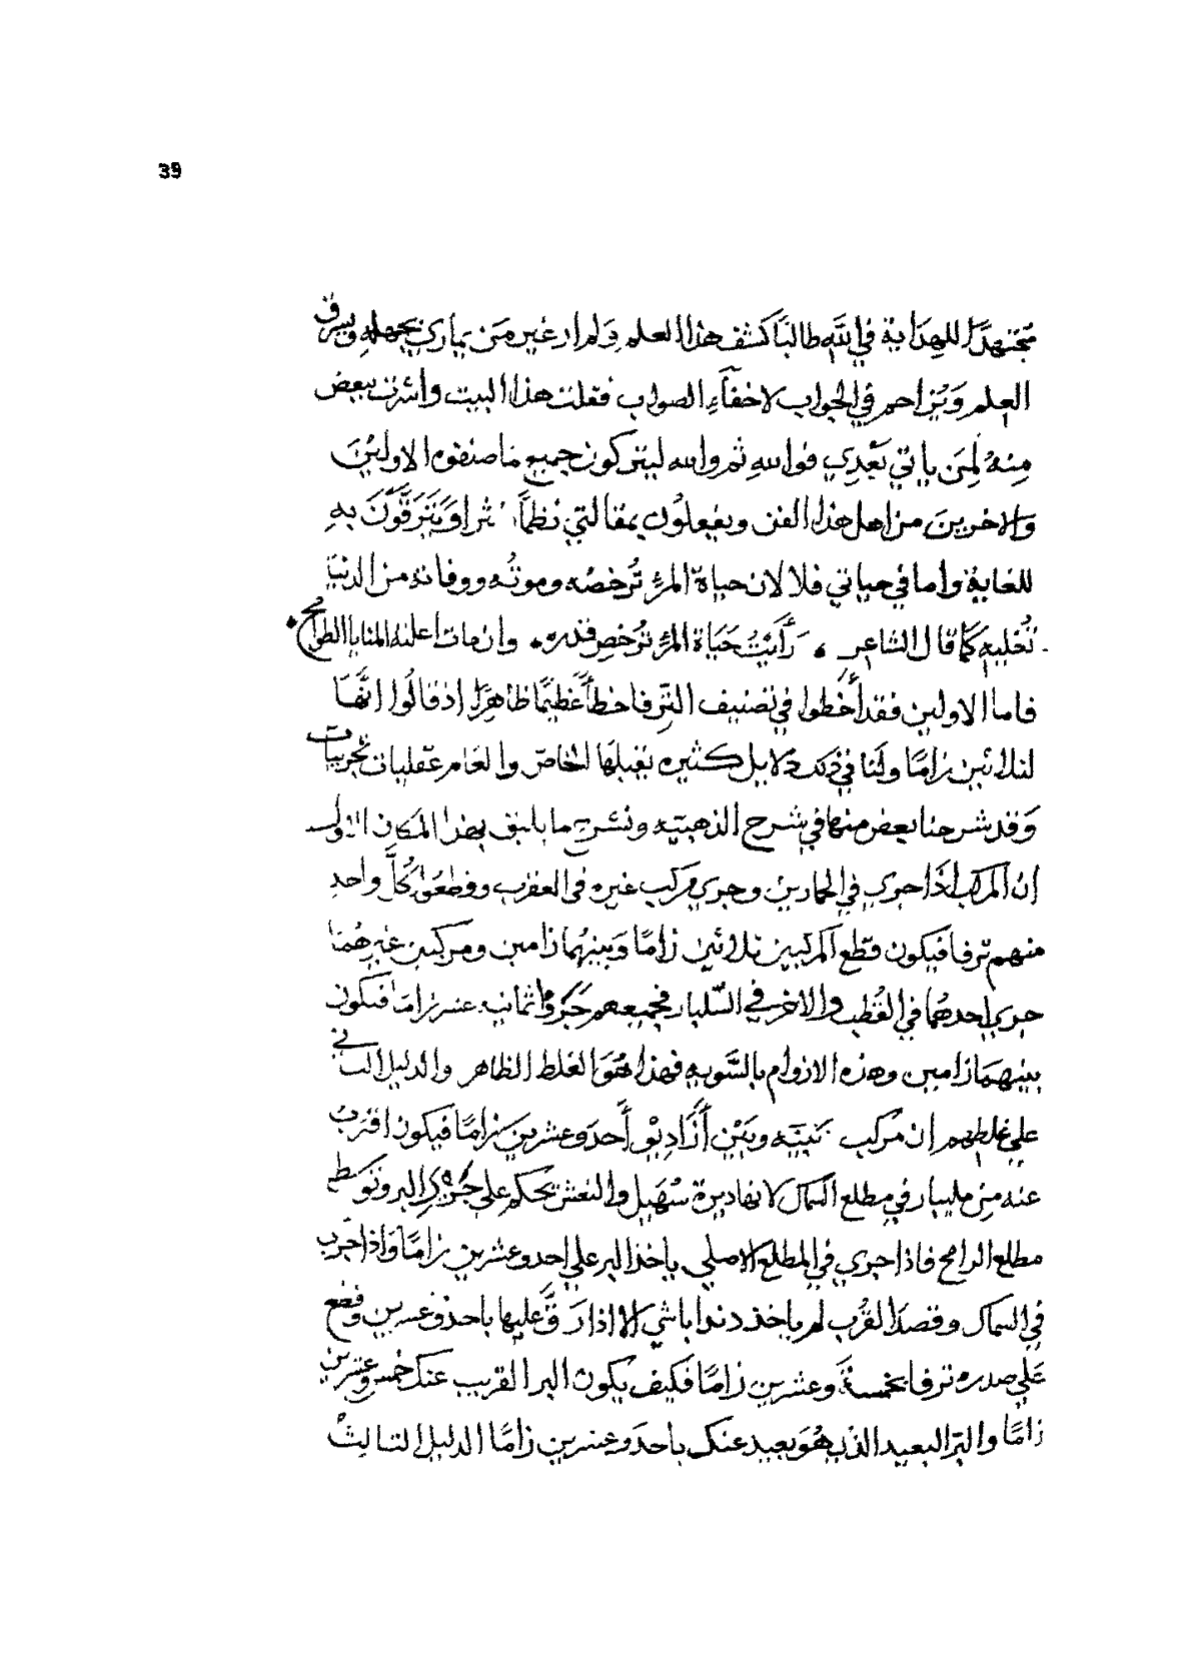 39
مجتهدًا للهداية في الله طالبًا كشف هذا العلم ولم ار غير من يماري بجهله ويسرق
العلم ويزاحم في الجواب لاخفآء الصواب فقلت هذا البيت واشرت ببعض
منه لمن ياتي بعدي فوالله ثم والله ليتركون جميع ما صنفوه الاولين
والاخرين من اهل هذا الفن ويفعلون بمقالتي نظمًا نثرا ويترقون به
للغاية واما في حياتي فلا لان حياة المرء ترخصه وموته ووفاته من الدنيا
تغليه كما قال الشاعر رأيت حياة المرء ترخص قدره وان مات اعلته المنايا الطوامح
فاما الاولين فقد أخطوا في تصنيف الترفا خطأً عظيمًا ظاهرًا اذ قالوا انها
لثلاثين زامًا ولنا في ذلك دلايل كثيره يقبلها الخاص والعام عقليات تجربيات
وقد شرحنا بعض منها في شرح الذهبيه ونشرح ما يليق بهذا المكان الاول
ان المركب اذا جري في الحمارين وجري مركب غيره في العقرب وقطعوا كل واحد
منهم ترفا فيكون قطع المركبين ثلاثين زامًا وبينهما زامين ومركبين غيرهما
جري احدهما في القطب والاخر في السلبار فجميعهم جروا ثمانيه عشر زامًا فيكون
بينهما زامين وهذه الازوام بالسويه فهذا هو الغلط الظاهر والدليل الثاني
علي غلطهم ان مركب بينه وبين أحد وعشرين زامًا فيكون اقرب
عنه من مليبار في مطلع السماك لانها ديرة سهيل والنعش تحكم علي البر وتوسط
مطلع الرامح فاذا جري في المطلع الاصلي ياخذ البر علي احد وعشرين زامًا واذا جرب
في السماك وقصد القرب لم ياخذ دندا باشي الا اذا رق عليها باحد وعشرين وقطع
علي صدره ترفا بخمسة وعشرين زامًا فكيف يكون البر القريب عنك خمس وعشرين
زامًا والبر البعيد الذي هو بعيد عنك باحد وعشرين زامًا الدليل الثالث